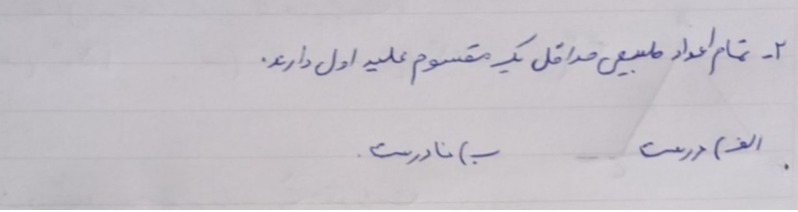 ۲- تمام اعداد طبیعی حداقل یک مقسوم علیه اول دارند.
الف) درست ب) نادرست.